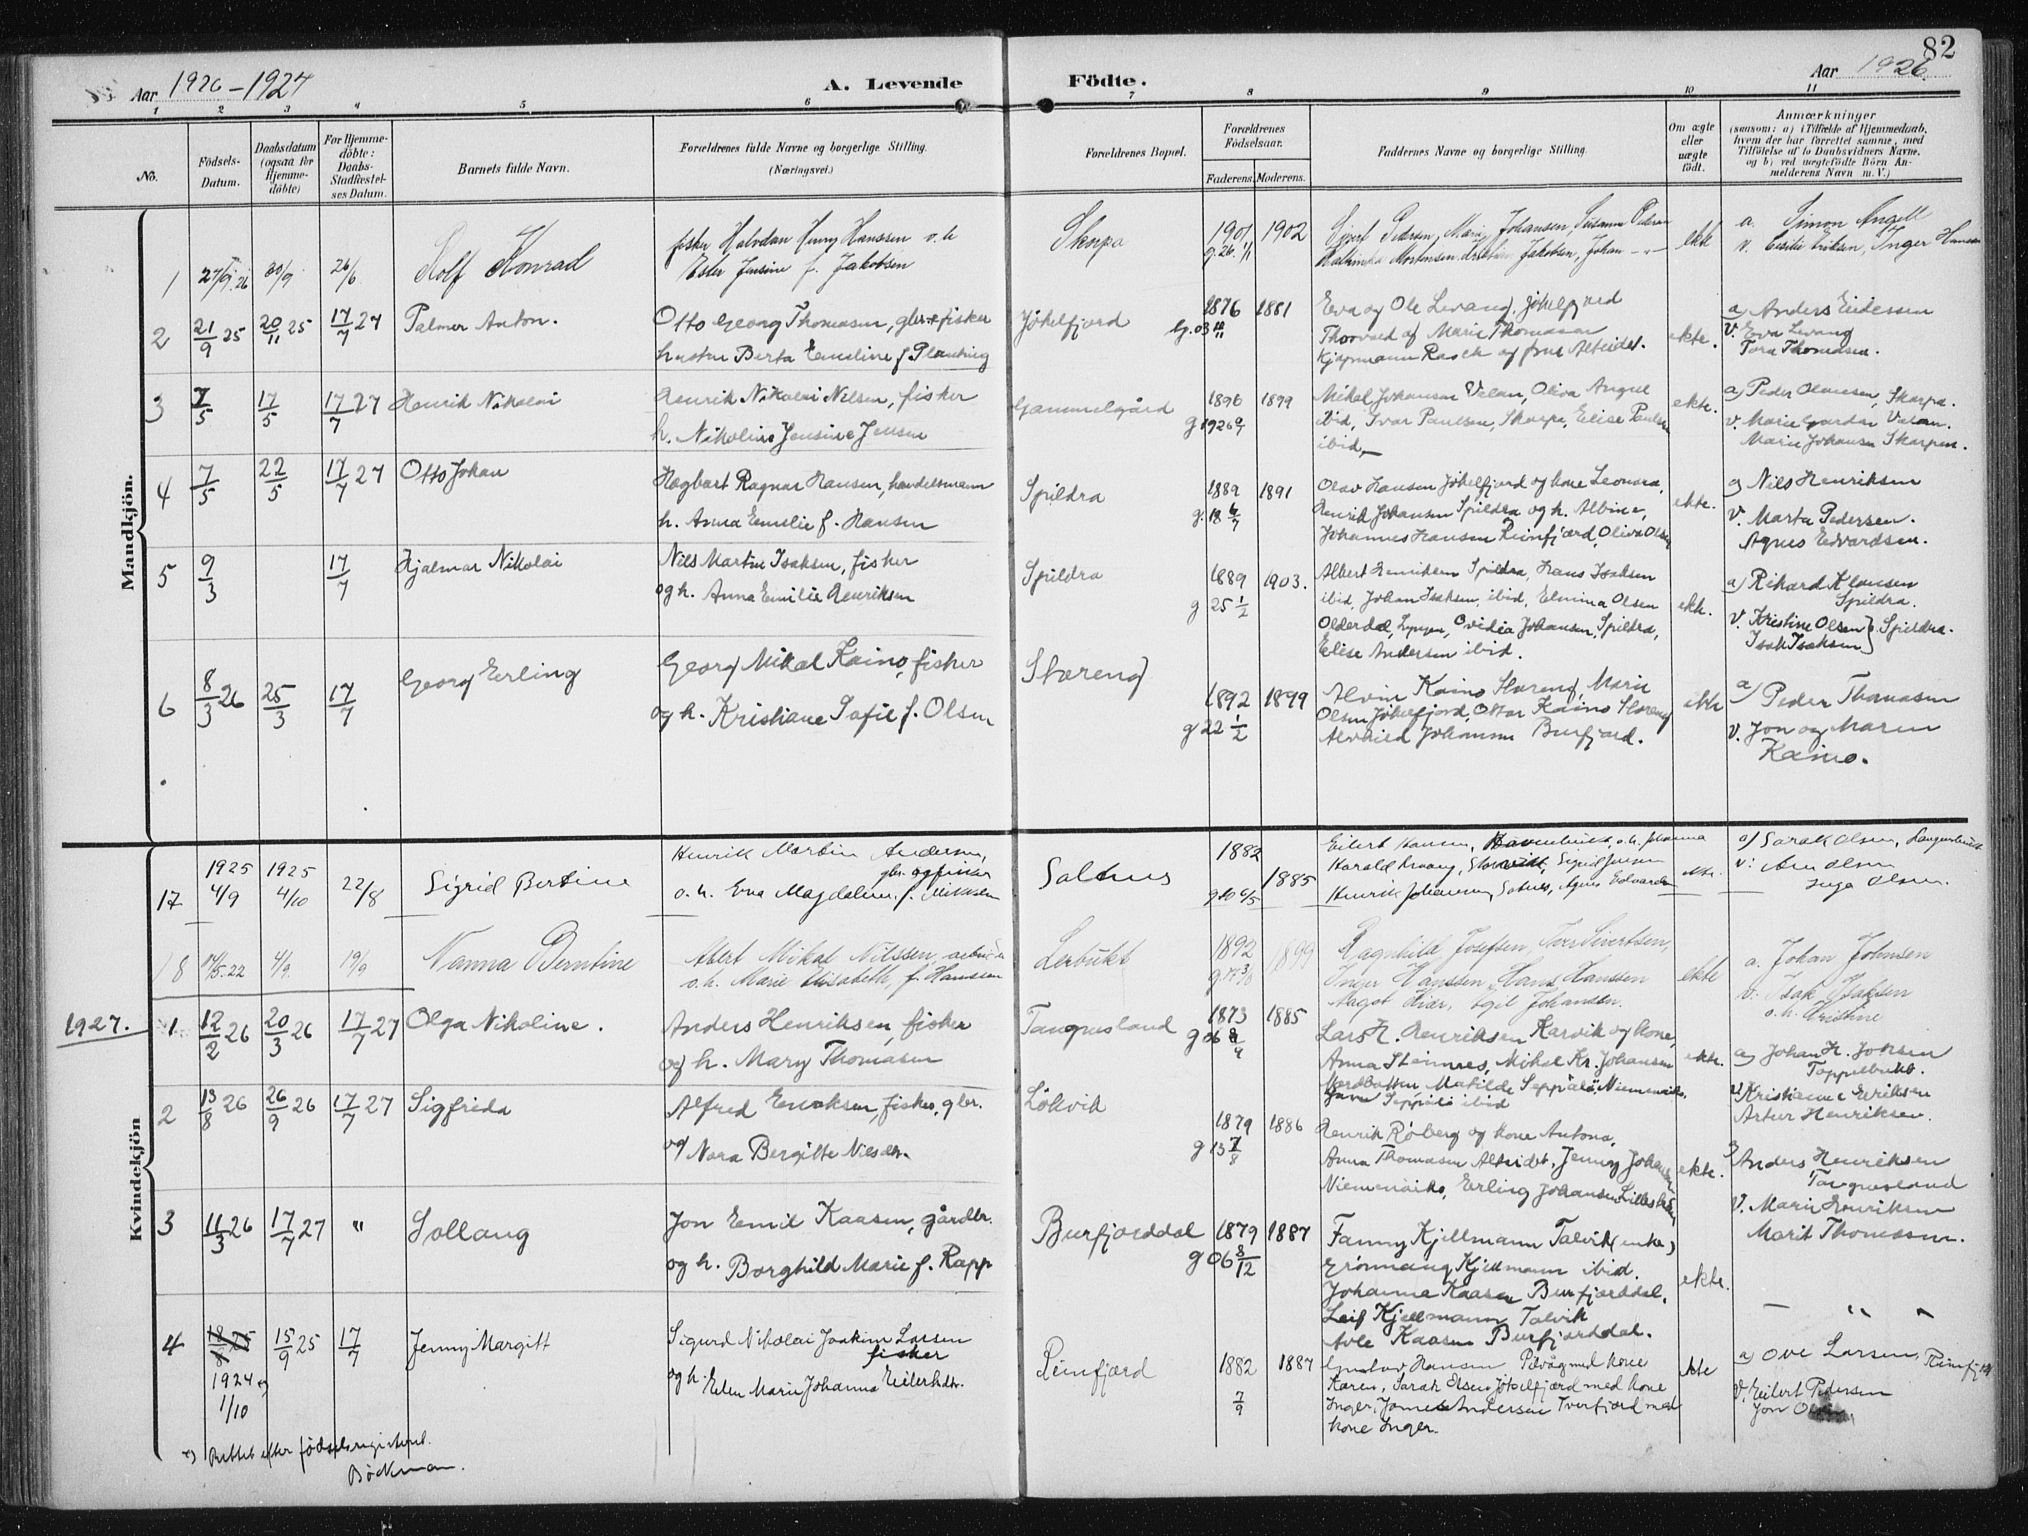 82
Aar 1926-1927
A. Levende
Födte.
Aar 1926.
1 2 3 4 5 6 7 8 9 10 11
No.
Födsels-Datum.
Daabsdatum (ogsaa for Hjemme-döbte)
For Hjemme-döbte: Daabs-Stadfæstel-ses Datum.
Barnets fulde Navn.
Forældrenes fulde Navne og borgerlige Stilling.
(Næringsvei.)
Forældrenes Bopæl.
Forældrenes Födselsaar.
Faderens. Moderens.
Faddernes Navne og borgerlige Stilling.
Om ægte eller uægte födt.
Anmærkninger
(saasom: a) i Tilfælde af Hjemmedaab,
hvem der har forrettet samme, med
Tilföielse af to Daabsvidners Navne,
og b) ved uægtefödte Börn An-
melderens Navn m. V.)
Mandkjön.
1 27/9.26 30/9 26/6 Rolf Konrad
fisker Halvdan Henry Hanssen o.h.
Ester Jensine f. Jakobsen
Skorpa
1901 1902
g. 26. 1/11
Sigurd Pedersen, Marie Johansen, Susanna Pedersen
Mortensen, Kristian Jakobsen, Johan
ekte
a. Simon Angell
v. Cecilie Eriksen, Inger Hanssen
2 21/9 25 20/11 25 17/7 27 Palmer Anton.
Otto Georg Thomasen, gbr. fisker
hustru Berta Emeline f. Planting
Jökelfjord
1876 1881
G. 03
Eva og Ole Levang, Jökelfjord
Thorvald og Marie Thomasen
Kjøpmann Rasch og frue Alteidet.
ekte.
a) Anders Eidessen
v. Eva Levang
Tora Thomasen.
3 7/5 17/5 17/7 27 Henrik Nikolai
Henrik Nikolai Nilsen, fisker
h. Nikoline Jensine Jensen
Gammelgård
1896 1899
g 1926
Mikal Johansen Valan, Oliva Angell
ibid, Ivar Paulsen, Skorpa, Elise Paulsen
ibid,
ekte.
a) Peder Olaussen, Skorpa.
v. Marie Valan.
Marie Johansen Skorpen.
4 7/5 22/5 17/7 27 Otto Johan
Hagbart Ragnar Hansen, handelsmann
h. Anna Emelie f. Hansen
Spildra
1889 1891
g. 18 6/7
Olav Hansen Jökelfjord og kone Leonora,
Henrik Johansen Spildra og h. Albine,
Johannes Hansen Reinfjord, Oliva Olsen
ekte.
a) Nils Henriksen
v. Marta Pedersen.
Agnes Edvardsen.
5 9/3 17/7 Hjalmar Nikolai
Nils Martin Isaksen, fisker
og h. Anna Emilie Henriksen
Spildra
1889 1903.
g 25 1/2
Albert Henriksen Spildra, Hans Isaksen
ibid, Johan Isaksen, ibid, Elmina Olsen
Olderdal, Lyngen, Ovidia Johansen, Spildra,
Elise Andersen ibid.
ekte.
a) Rikard Klausen
Spildra.
v. Kristine Olsen } Spildra.
Isak Isaksen
6 8/3 26 25/3 17/7 Georg Erling
Georg Mikal Kaino, fisker
og h. Kristiane Sofie f. Olsen
Storeng
1892 1899
g 22 1/2
Alvin Kaino Storeng, Marie
Olsen Jökelfjord, Ottar Kaino Storeng
Alvhild Johansen Burfjord.
ekte
a) Peder Thomasen
v. Jon og Maren
Kaino.
Kvindekjön
17 1925 4/9 1925 4/10 22/8 Sigrid Bertine
Henrik Martin Andersen,
gbr. og fisker
o.h. Eva Magdalene f. Mikkelsen
Saltnes
1882
1885
g 10 6/5
Eilert Hansen, o.h. Johanna
Harald Sigrid Jensen
Henrik Johansen, Saltnes, Agnes Edvardsen
ekte.
a/ Sarak Olsen, Langenbukt
v: Olsen
Inga Olsen.
18 14/5.22 4/9. 19/9 Nanna Berntine
Albert Mikal Nilssen, arbeider
o.h. Marie Elisabeth, f. Hanssen
Lerbukt
1892 1899
Ragnhild Josefsen, Iver Sivertsen,
Inger Hanssen, Hans Hanssen
Aagot Egil Johansen.
ekte
a. Johan Johnsen
v: Isak Isaksen
o.h. Kristine
1927. 1 12/2 26 20/3 26 17/7 27 Olga Nikoline.
Anders Henriksen, fisker
og h. Mary Thomasen
Tangnesland
1873 1885
g 06 8/9
Lars H. Henriksen Karvik og kone,
Anna Steinnes, Mikal Kr. Johansen
Nordbotten Matilde Seppälä Niemenaiko,
Seppälä ibid
ekte.
a) Johan H. Johnsen
Toppelbukt.
v) Kristianne Eriksen
Artur Henriksen.
2 13/8 26 26/9 26 17/7 27 Sigfrida
Alfred Eriksen, fisker, gbr.
og Nora Bergitte Nilsdtr.
Lökvik
1879 1886
g 13 7/8
Henrik Röberg og kone Antona,
Anna Thomasen Alteidet, Jenny Johansen
Niemenaiko, Erling Johansen
ekte.
a) Anders Henriksen
Tangnesland
v. Marie Henriksen
Marit Thomasen.
3 11/3 26 17/7 27 " Sollaug
Jon Emil Kaasen, gårdbr.
og h. Borghild Marie f. Rapp
Burfjorddal
1879 1887
g 06 8/12
Fanny Kjellmann Talvik (enke)
Kjellmann ibid.
Johanna Kaasen Burfjorddal,
Leif Kjellmann Talvik
Kaasen Burfjorddal.
ekte.
— " "
4 18/8 25 15/9 25 17/7 Jenny Margitt
1924 x)
1/10
Sigurd Nikolai Joakim Larsen
fisker
og h. Elen Marie Johanna Eilertsdtr.
Reinfjord
1882 1887
7/9
Gustav Hansen Pilvåg med kone
Karen, Sarak Olsen Jökelfjord med kone
Inger, James Andersen Tverfjord med
kone Inger.
ekte
a) Ove Larsen, Reinfjord
v. Eilert Pedersen
Jon Olsen
x) Rettet efter fødselsregisteret.
Böckman.